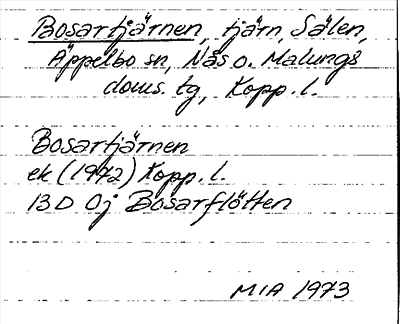 Bosartjärnen, tjärn, Sälen,
Äppelbo sn, Nås o. Malungs
doms. tg, Kopp. l.
Bosartjärnen
ek (1972) Kopp. l.
13D 0j Bosarflötten
MIA 1973